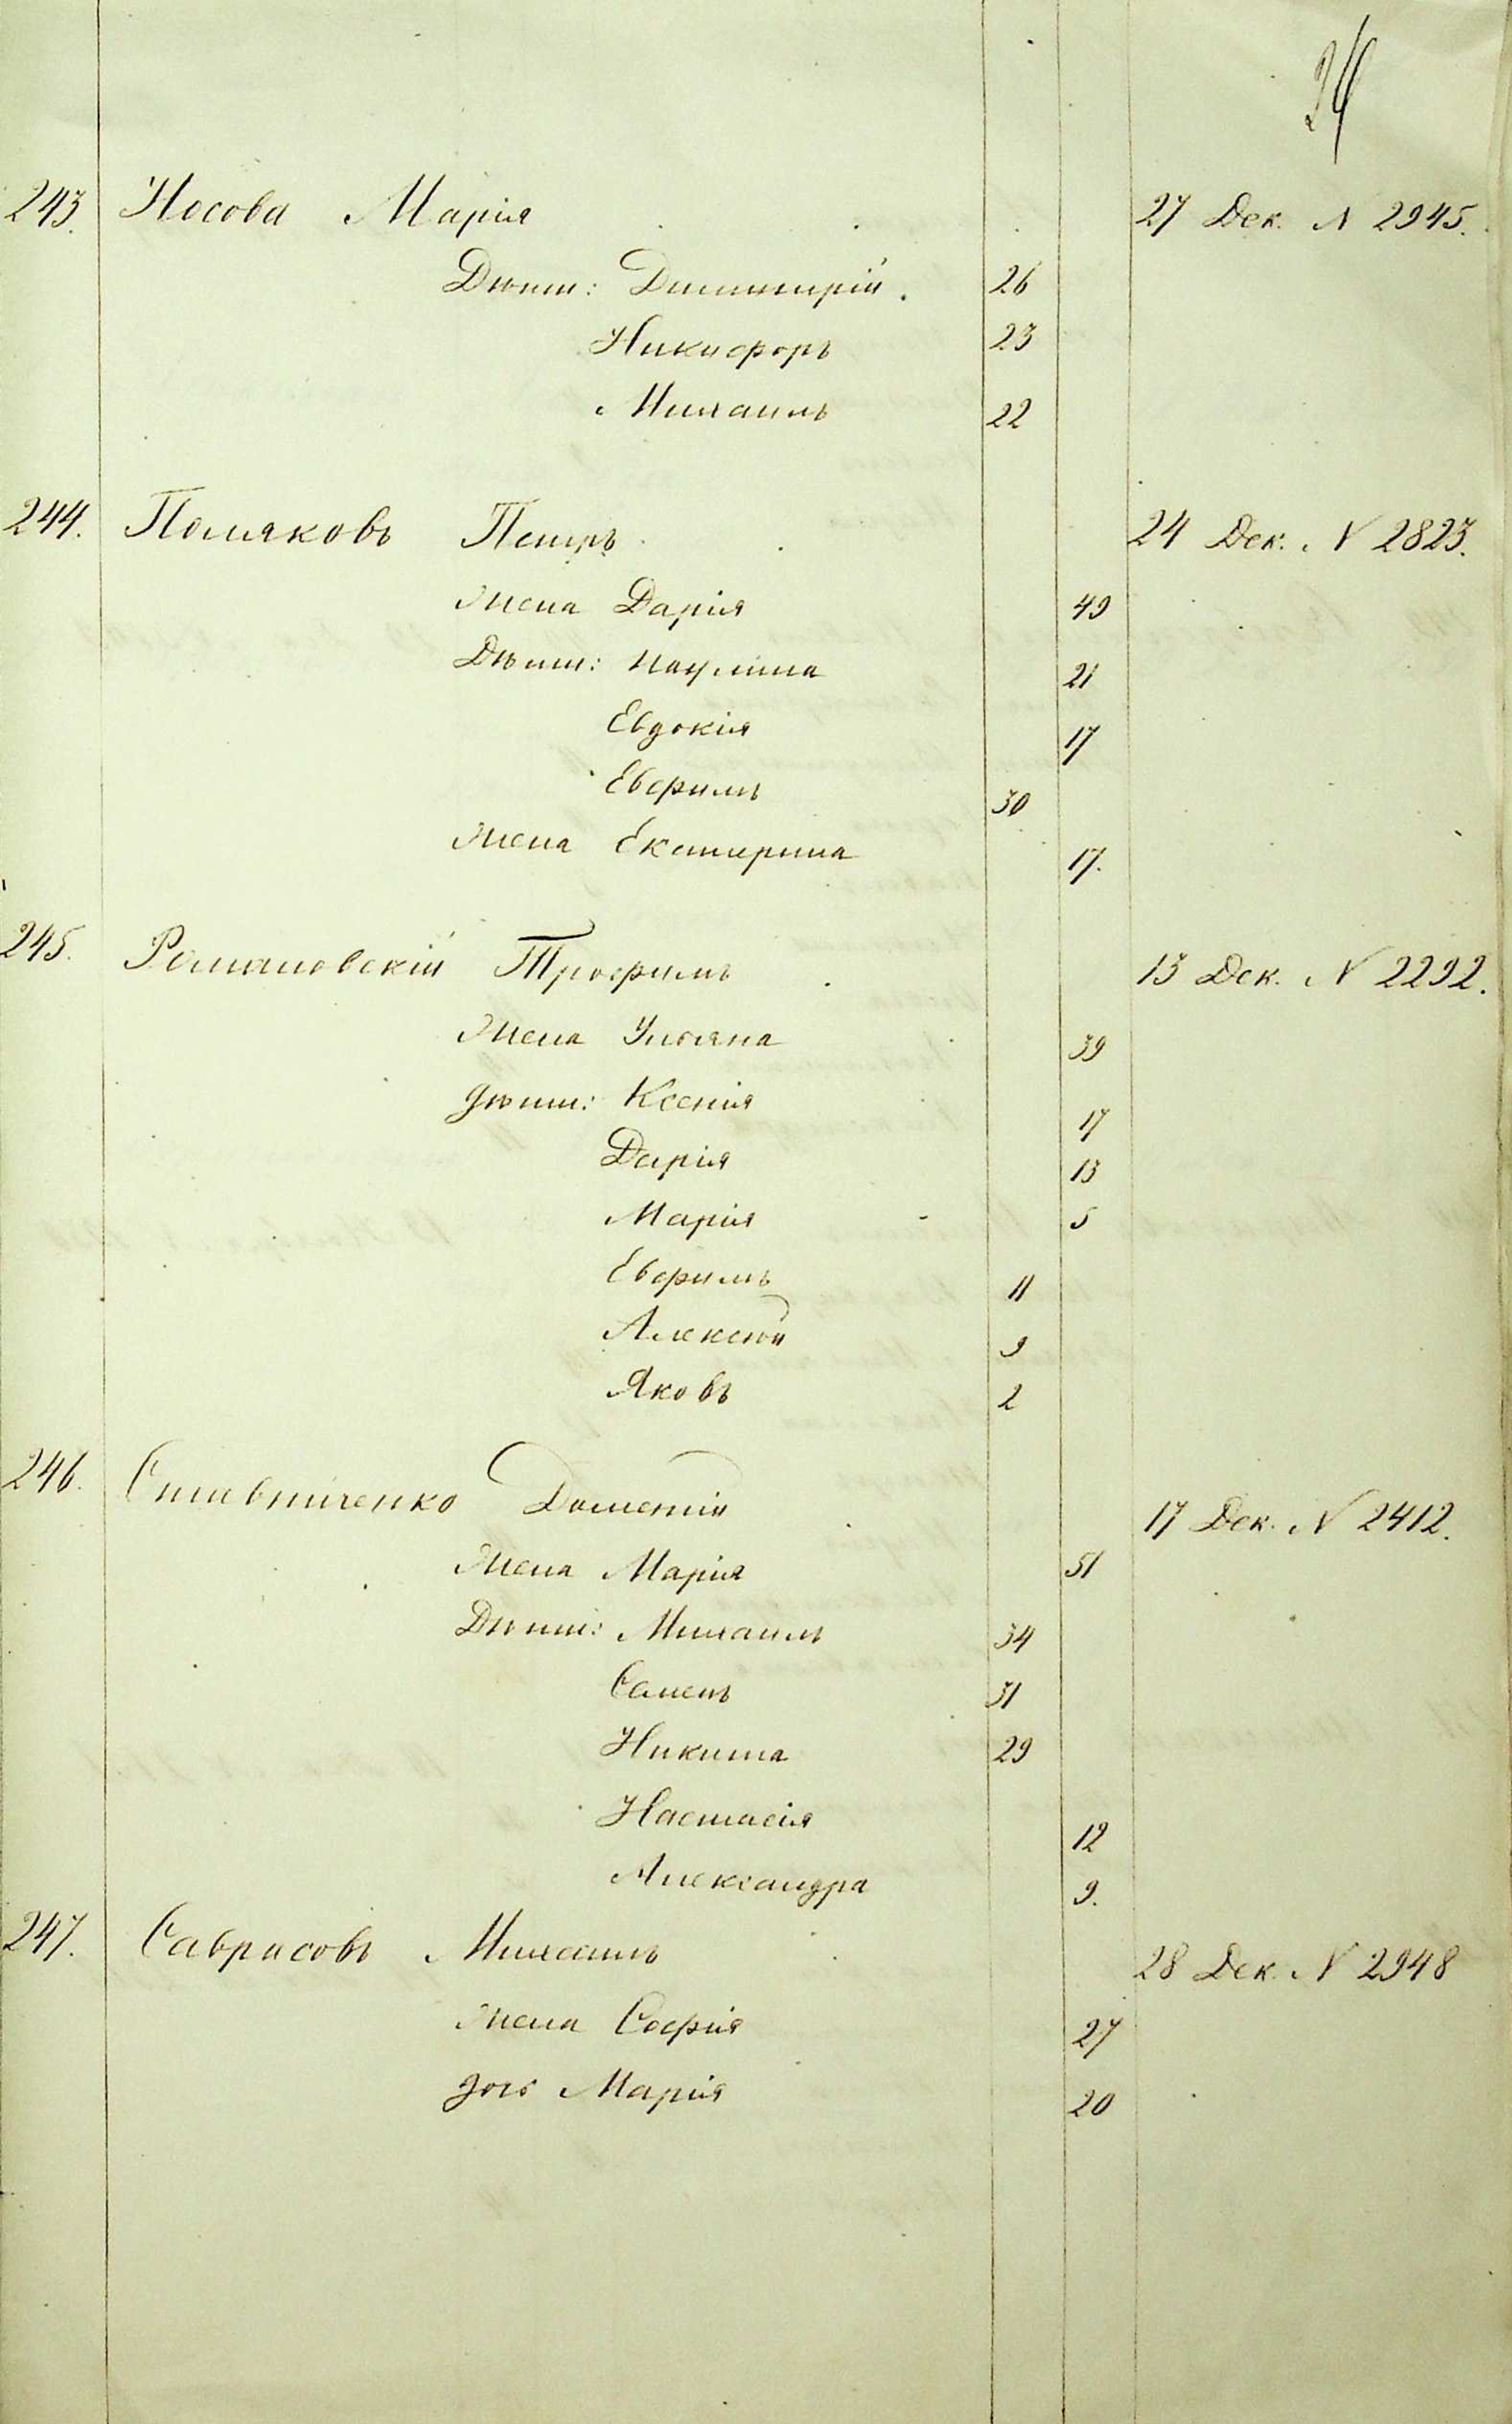 24
243. Носова Марія 27 Дек. N 2945.
Дѣти: Димитрій. 26
Никифоръ 23
Михаилъ 22
244. Поляковъ Петръ 24 Дек. N 2823.
Жена Дарія 49
Дѣти: Паулина 21
Евдокія 17
Евфимъ 30
Жена Екатерина 17.
245. Романовскій Трофимъ 13 Дек. N 2292.
Жена Ульяна 39
дѣти: Ксенія 17
Дарія 13
Марія 5
Евфимъ 11
Алексѣй 9
Яковъ 2
246. Дометій 17 Дек. N 2412.
Жена Марія 51
Дѣти: Михаилъ 34
Семенъ 31
Никита 29
Настасія 12
Александра 9.
247. Саврасовъ Михаилъ 28 Дек. N 2948
Жена Софія 27
дочь Марія 20